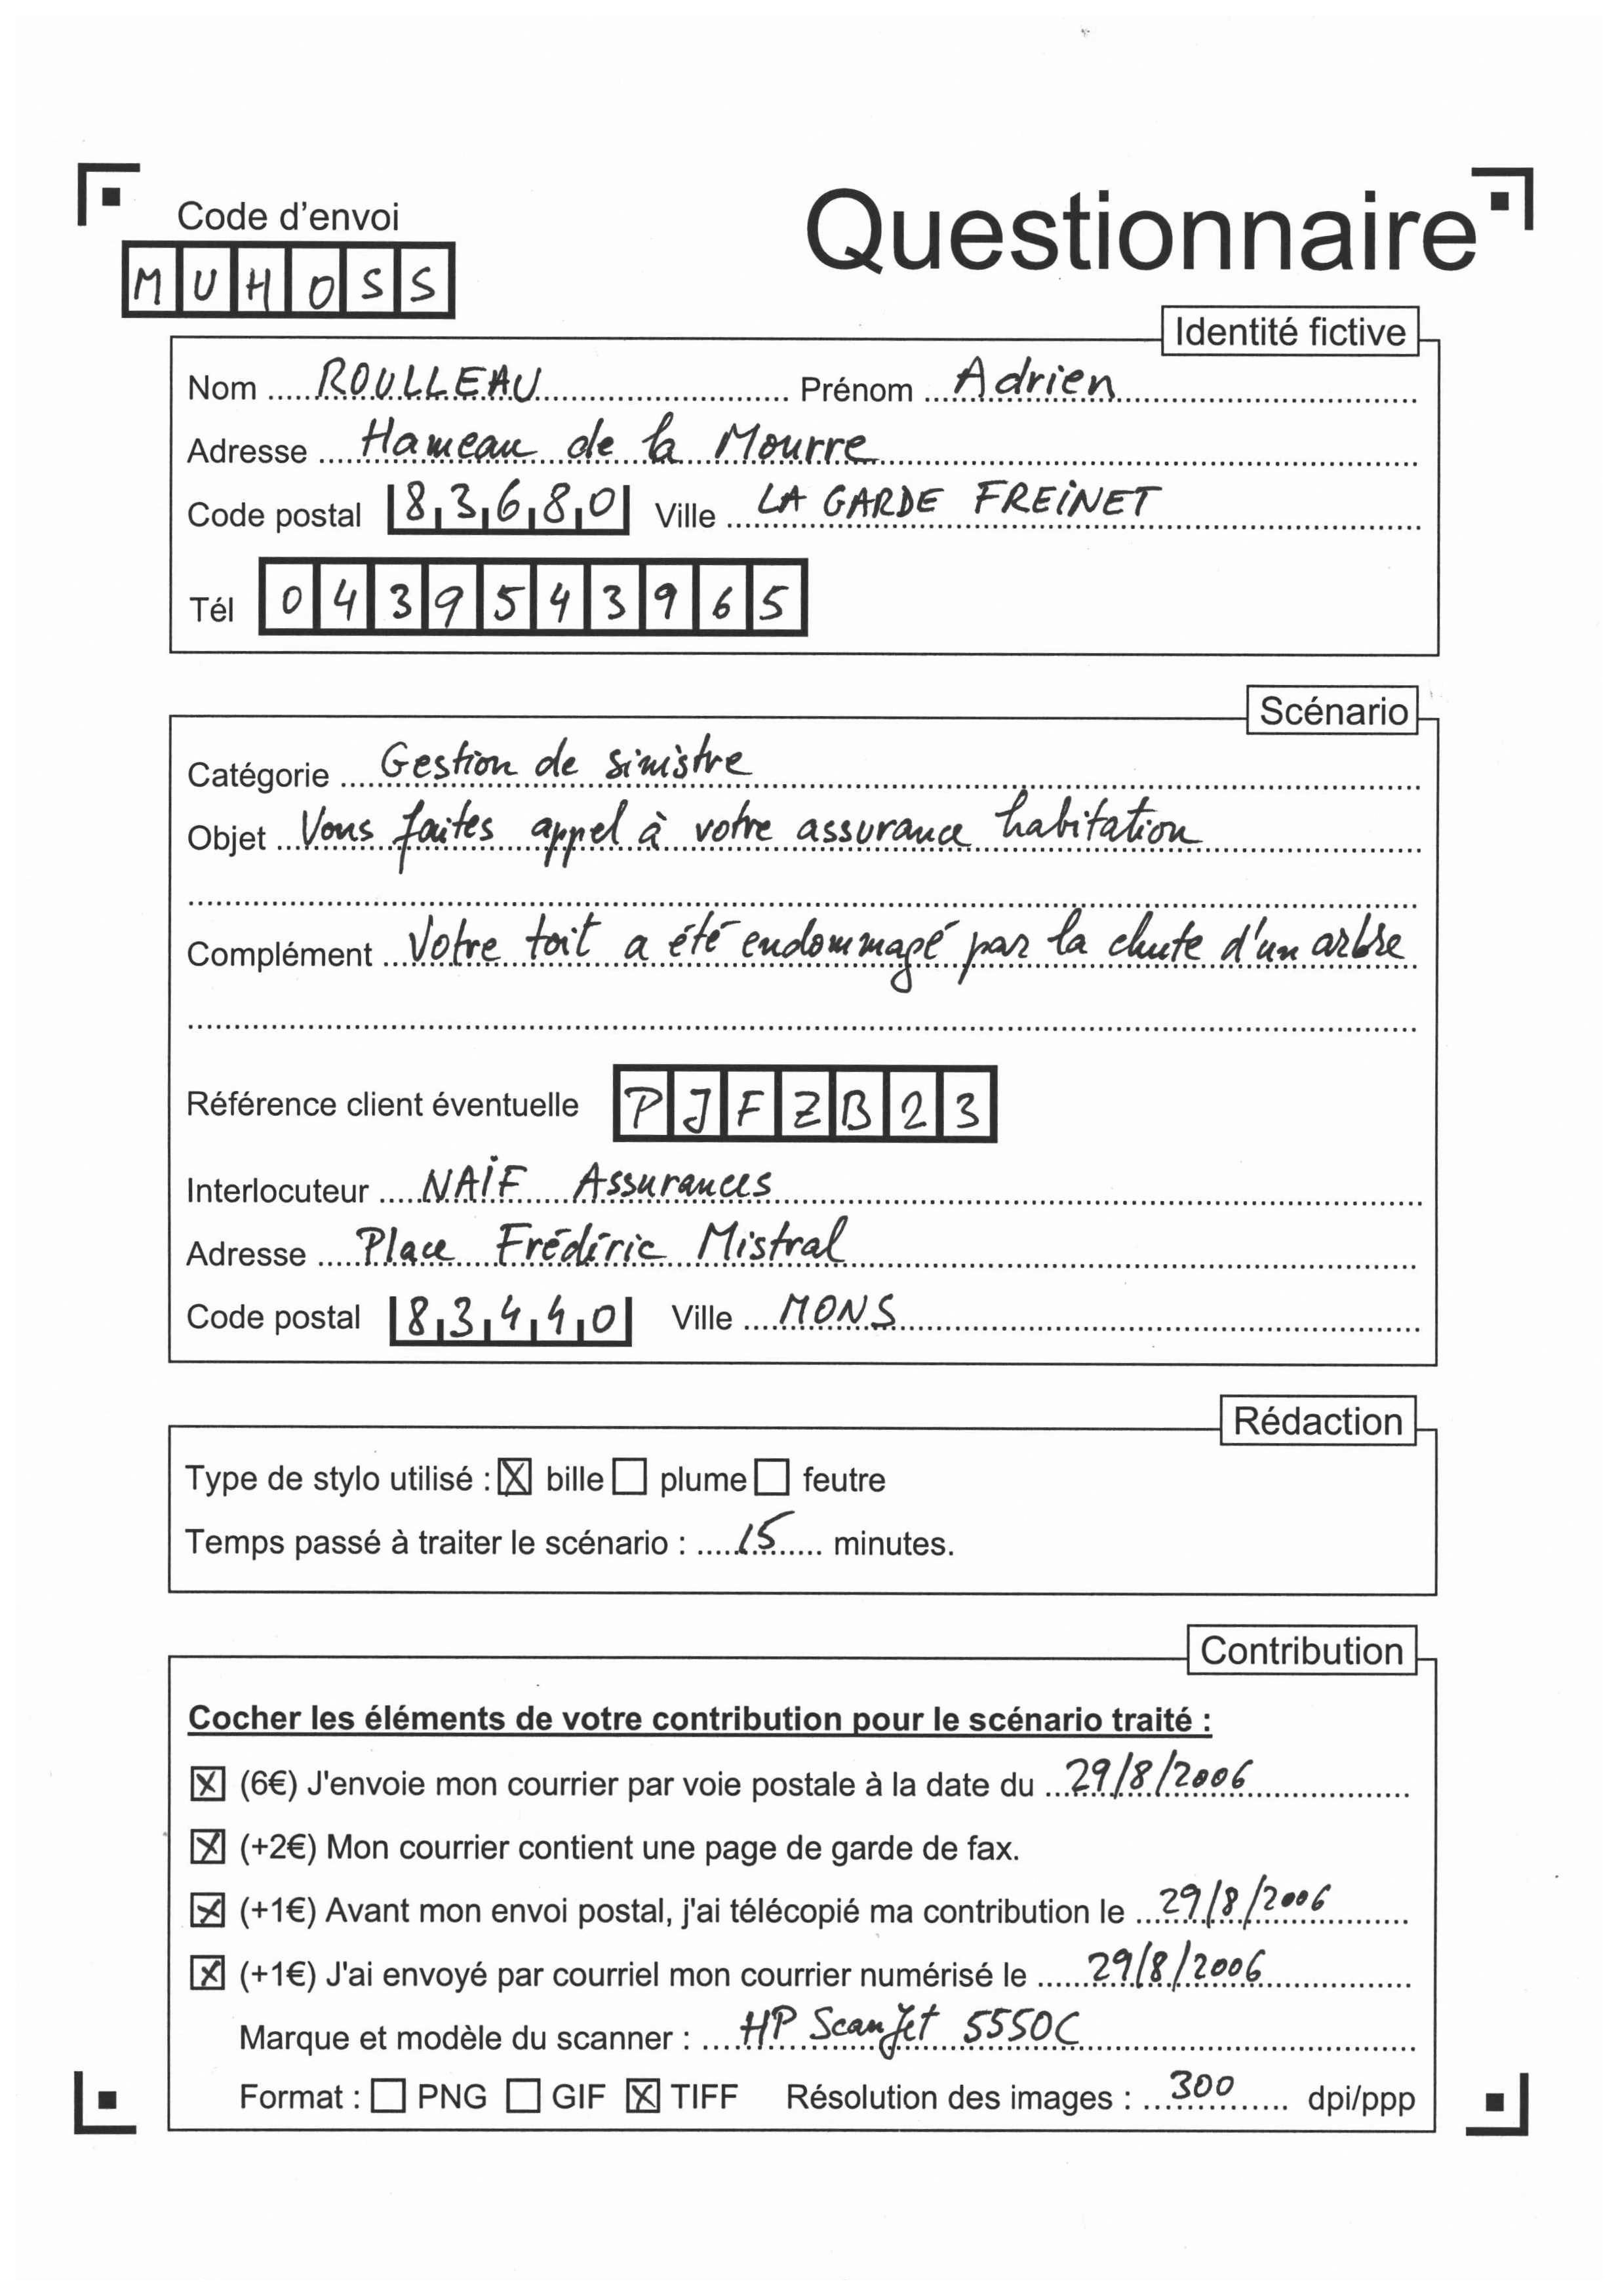 Code d'envoi
Questionnaire
MUHOSS
Identité fictive
Nom ROULLEAU Prénom Adrien
Adresse Hameau de la Mourre
Code postal 83680 Ville LA GARDE FREINET
Tél 0439543965
Scénario
Catégorie Gestion de sinistre
Objet Vous faites appel à votre assurance habitation
Complément Votre toit a été endommagé par la chute d'un arbre
Référence client éventuelle PJFZB23
Interlocuteur NAÏF Assurances
Adresse Place Frédéric Mistral
Code postal 83440 Ville MONS
Rédaction
Type de stylo utilisé : ☒ bille ☐ plume ☐ feutre
Temps passé à traiter le scénario : 15 minutes.
Contribution
Cocher les éléments de votre contribution pour le scénario traité :
☒ (6€) J'envoie mon courrier par voie postale à la date du 29/8/2006
☒ (+2€) Mon courrier contient une page de garde de fax.
☒ (+1€) Avant mon envoi postal, j'ai télécopié ma contribution le 29/8/2006
☒ (+1€) J'ai envoyé par courriel mon courrier numérisé le 29/8/2006
Marque et modèle du scanner : HP ScanJet 5550C
Format : ☐ PNG ☐ GIF ☒ TIFF Résolution des images : 300 dpi/ppp